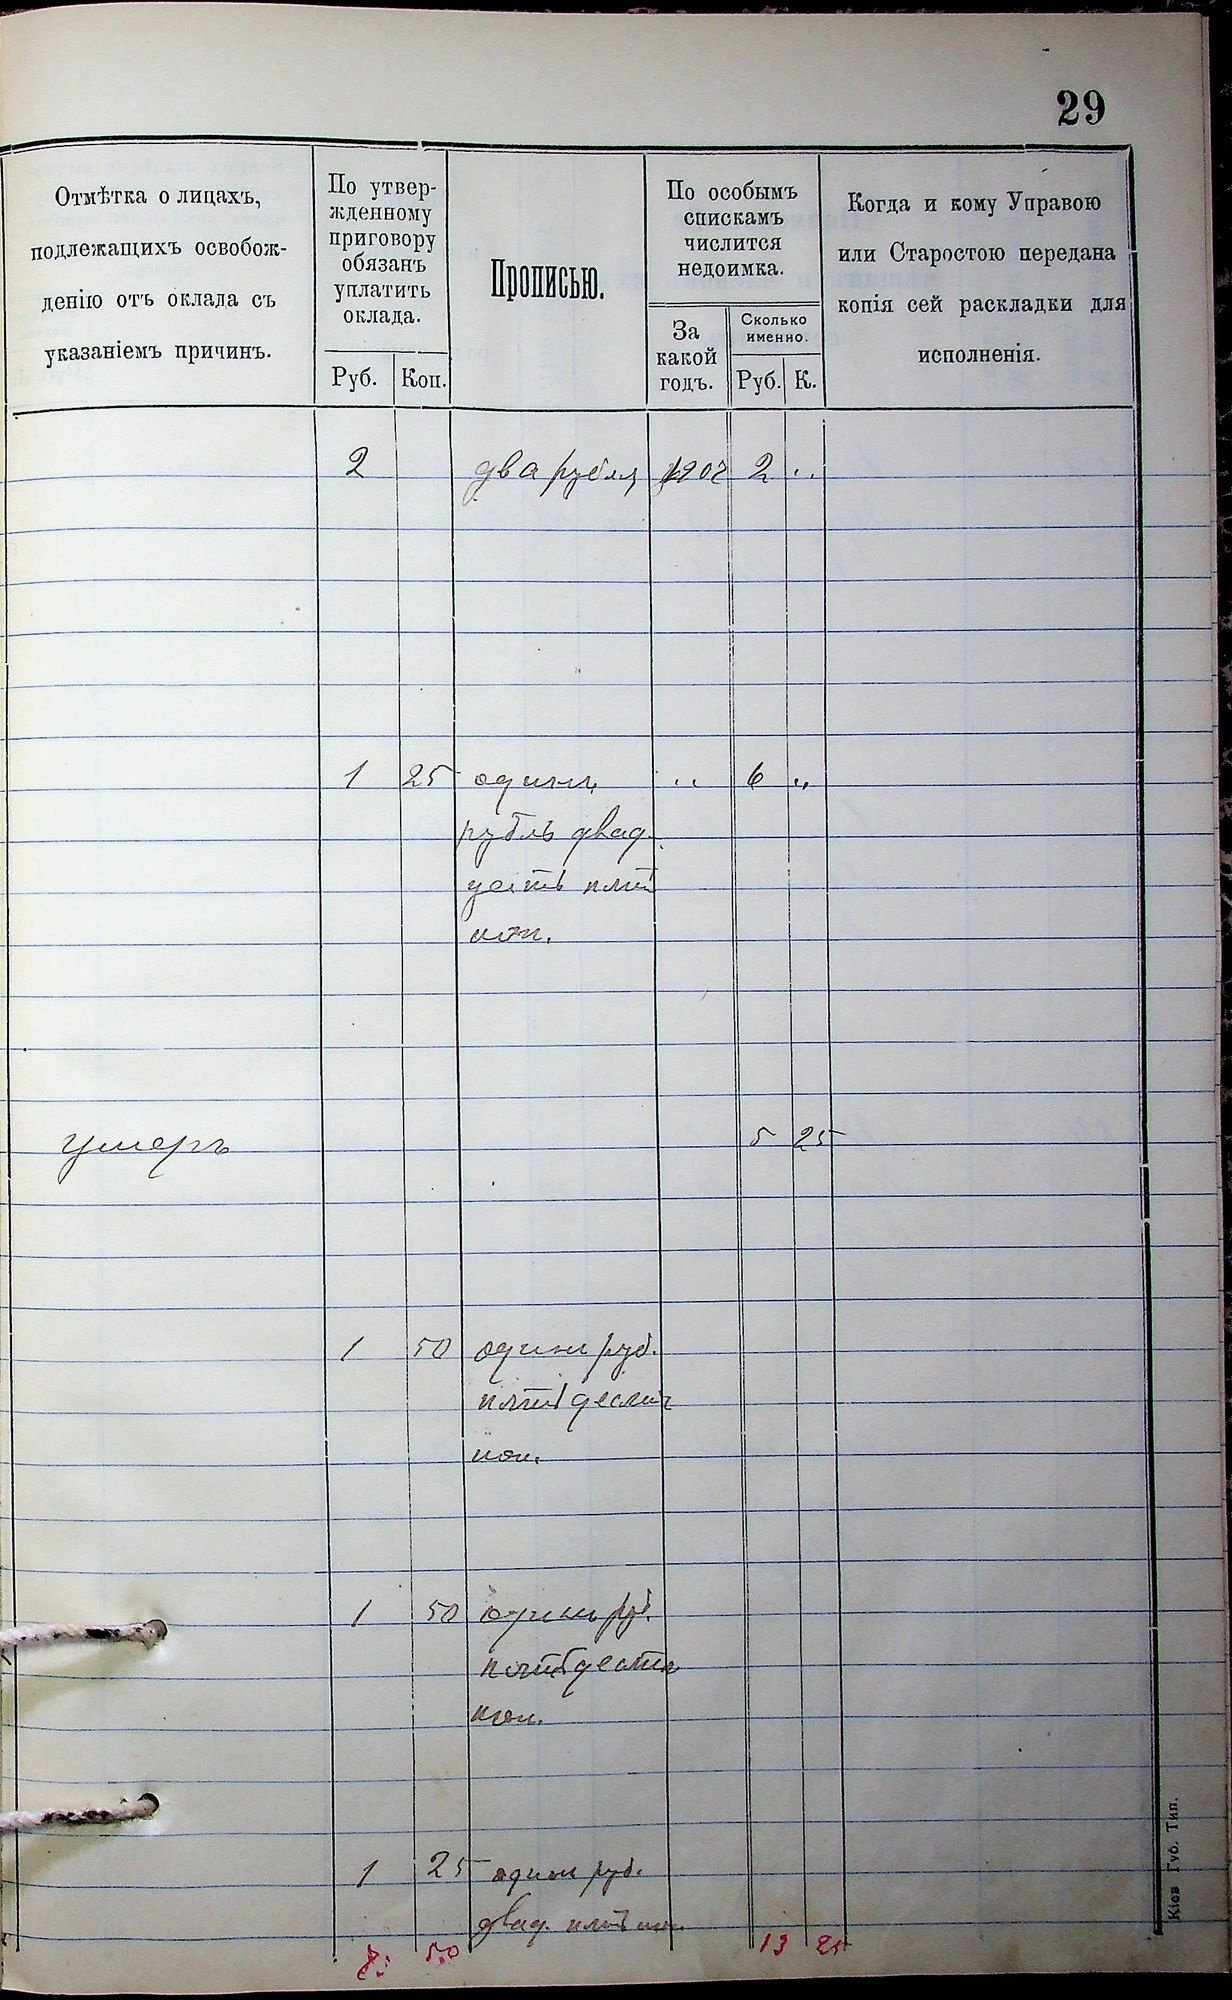 29
Отмѣтка о лицахъ,
подлежащихъ освобож-
денію отъ оклада съ
указаніемъ причинъ.
По утвер-
жденному
приговору
обязанъ
уплатить
оклада.
Руб. Коп.
Прописью.
По особымъ
спискамъ
числится
недоимка.
За
какой
годъ.
Сколько
именно.
Руб. К.
Когда и кому Управою
или Старостою передана
копія сей раскладки для
исполненія.
2 два рубля 1907 2 „
1 25 одинъ „ 6 „
рубль двад-
цать пять
коп.
умеръ 5 25
1 50 одинъ руб.
пятьдесят
коп.
1 50 одинъ руб.
пятьдесят
коп.
1 25 один руб.
двад. пять коп.
7. 50 13 25
Кіев Губ. Тип.